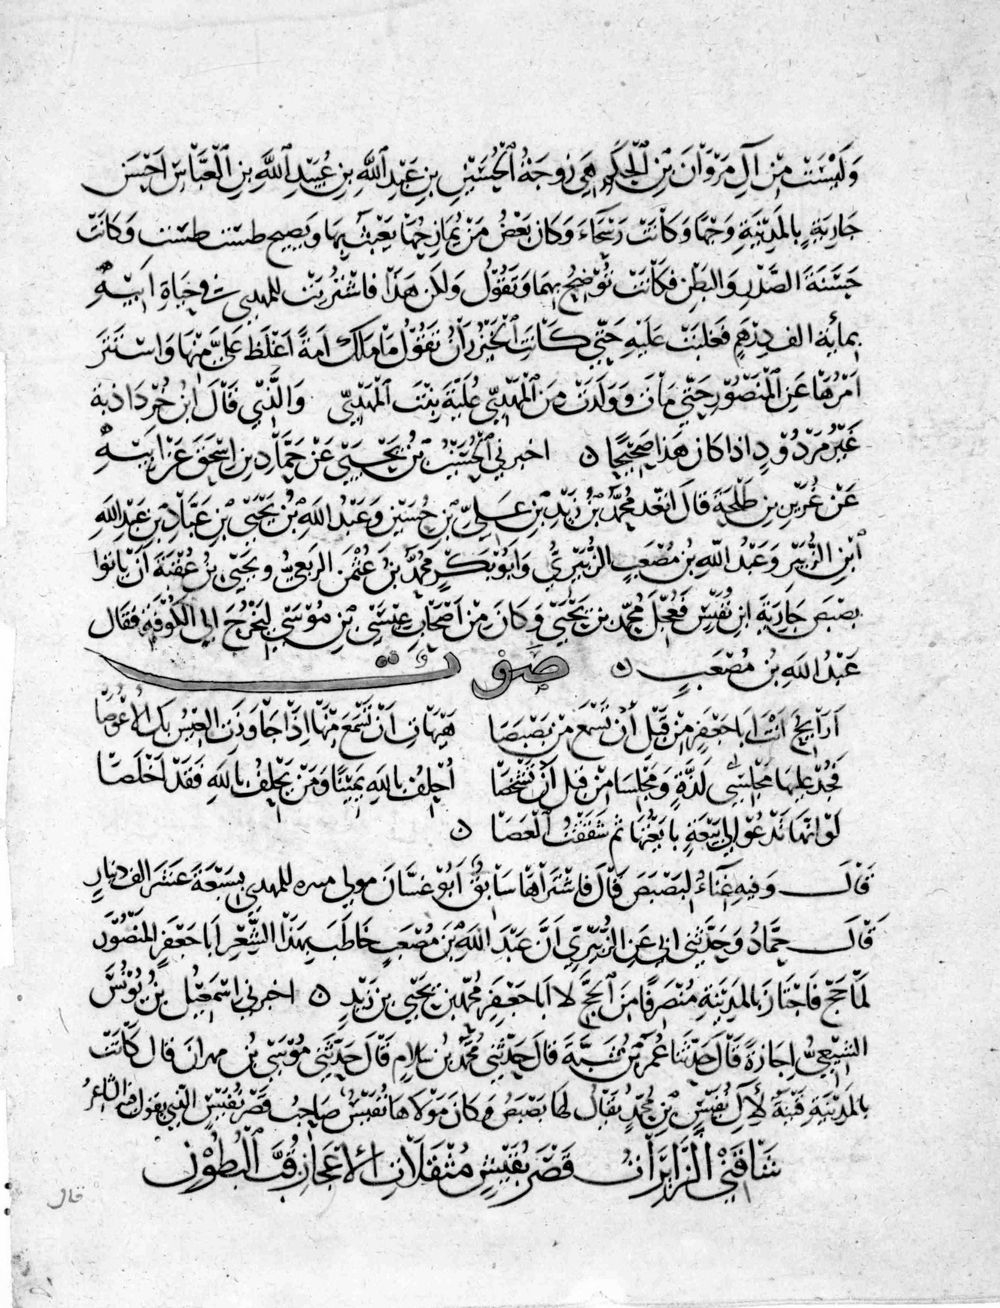 وليست من آل مروان بن الحكم هي زوجة الحسين بن عبد الله بن عبيد الله بن العباس احسن
جارية بالمدينة وجها وكانت رسحاء وكان بعض من يمازحها يعبث بها ويصيح طست طست وكانت
حسنة الصدر والبطن فكانت توضح بهما وتقول ولكن هذا فاشتريت للمهدي في حياة ابيه
بمائة الف درهم فغلبت عليه حتى كانت الخيزران تقول ما ملك امة اغلظ علي منها واستتر
امرها عن المنصور حتى مات وولدت من المهدي علية بنت المهدي والذي قال ابن خرداذبة
غير مردود اذا كان هذا صحيحا ه اخبرني الحسين بن يحيى عن حماد بن اسحق عن ابيه
عن غرير بن طلحة قال اتعد محمد بن زيد بن علي بن حسين وعبد الله بن يحيى بن عباد بن عبد الله
ابن الزبير وعبد الله بن مصعب الزبيري وابو بكر محمد بن عثمن الربعي ويحيى بن عقبة ان ياتوا
بصبص جارية ابن نفيس فعجل محمد بن يحيى وكان من اصحاب عيسى بن موسى ليخرج الى الكوفة فقال
عبد الله بن مصعب ه صوت
اراىح انت ابا جعفر من قبل ان تسمع من بصبصا هيهات ان تسمع منها اذا جاوزت العيس بك الاعوصا
فخذ عليها مجلسي لذة ومجلسا من قبل ان تشخصا احلف بالله يمينا ومن يحلف بالله فقد اخلصا
لو انها تدعو الى بيعة بايعتها ثم شققت العصا ه
قال وفيه غناء لبصبص قال فاشتراها سابق ابو غسان مولى منيره للمهدي بسبعة عشر الف دينار
قال حماد وحدثني ابي عن الزبيري ان عبد الله بن مصعب خاطب بهذا الشعر ابا جعفر المنصور
لما حج فاجتاز بالمدينة منصرفا من الحج لا ابا جعفر محمد بن يحيى بن زيد ه اخبرني اسمعيل بن يونس
الشيعي اجازة قال حدثنا عمر بن شبة قال حدثني محمد بن سلام قال حدثني موسى بن مهران قال كانت
بالمدينة قينة لآل نفيس بن محمد يقال لها بصبص وكان مولاها نفيس صاحب قصر نفيس الذي يقول فيه الشاعر
شاقني الزايرات قصر نفيس مثقلات الاعجاز قب البطون
قال